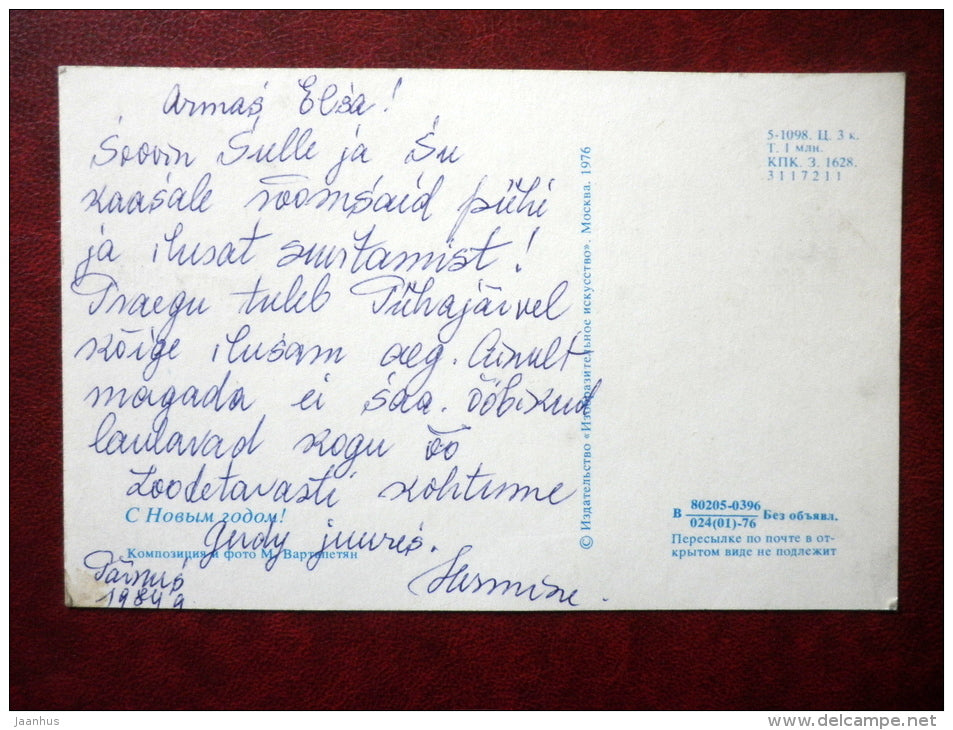 Armas Elsa!
Soovin Sulle ja Su
kaasale rõõmsaid pühi
ja ilusat suvitamist!
Praegu tuleb Pühajärvel
kõige ilusam aeg. Ainult
magada ei saa. Ööbikud
laulavad kogu öö
Loodetavasti kohtume
Gerdy juures.
Hermine.
Pärnus
1984 a
С Новым годом!
Композиция и фото М. Вартопетян
© Издательство «Изобразительное искусство». Москва. 1976
5-1098. Ц. 3 к.
Т. 1 млн.
КПК. З. 1628.
3117211
В 80205-0396
024(01)-76 Без объявл.
Пересылке по почте в от-
крытом виде не подлежит
jaanhus
www.delcampe.net